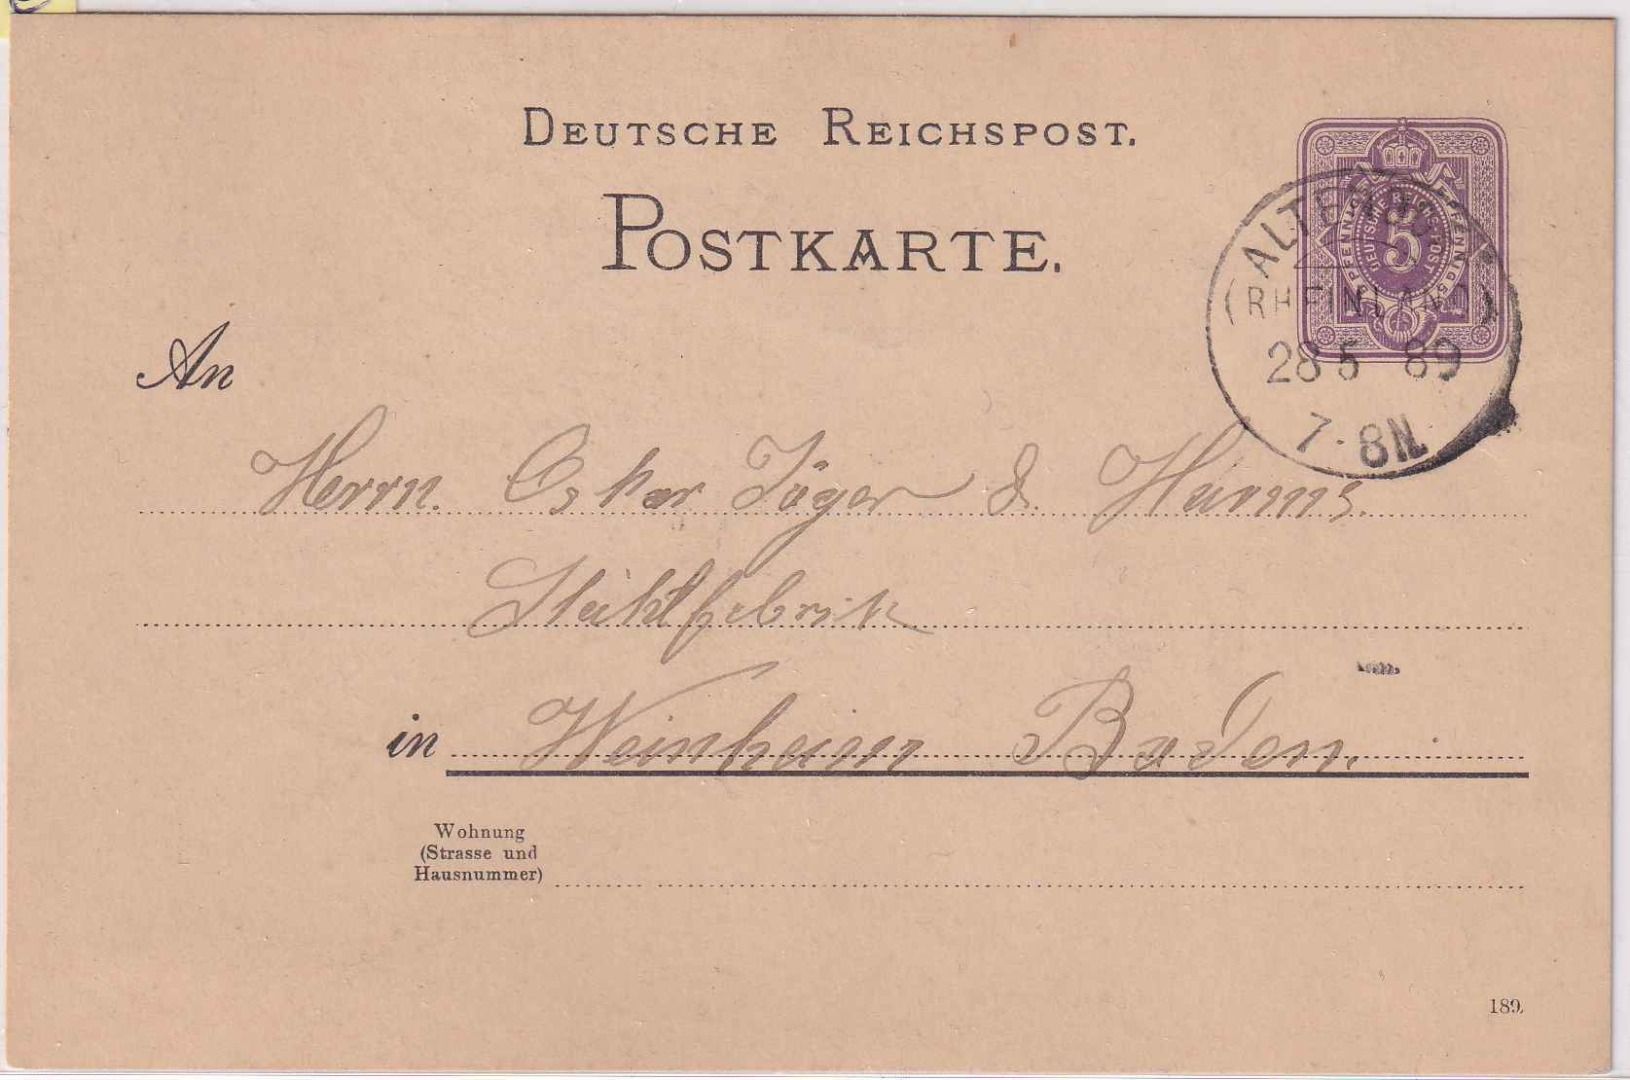 DEUTSCHE REICHSPOST.
POSTKARTE.
PFENNIG 5 PFENNIG 5
DEUTSCHE REICHS-POST
5
(RHEINLAND)
28 5 89
7-8N.
An
Herrn. Oskar Jäger & Harms.
Stuhlfabrik
in Weinheim Baden.
Wohnung
(Strasse und
Hausnummer)
189.